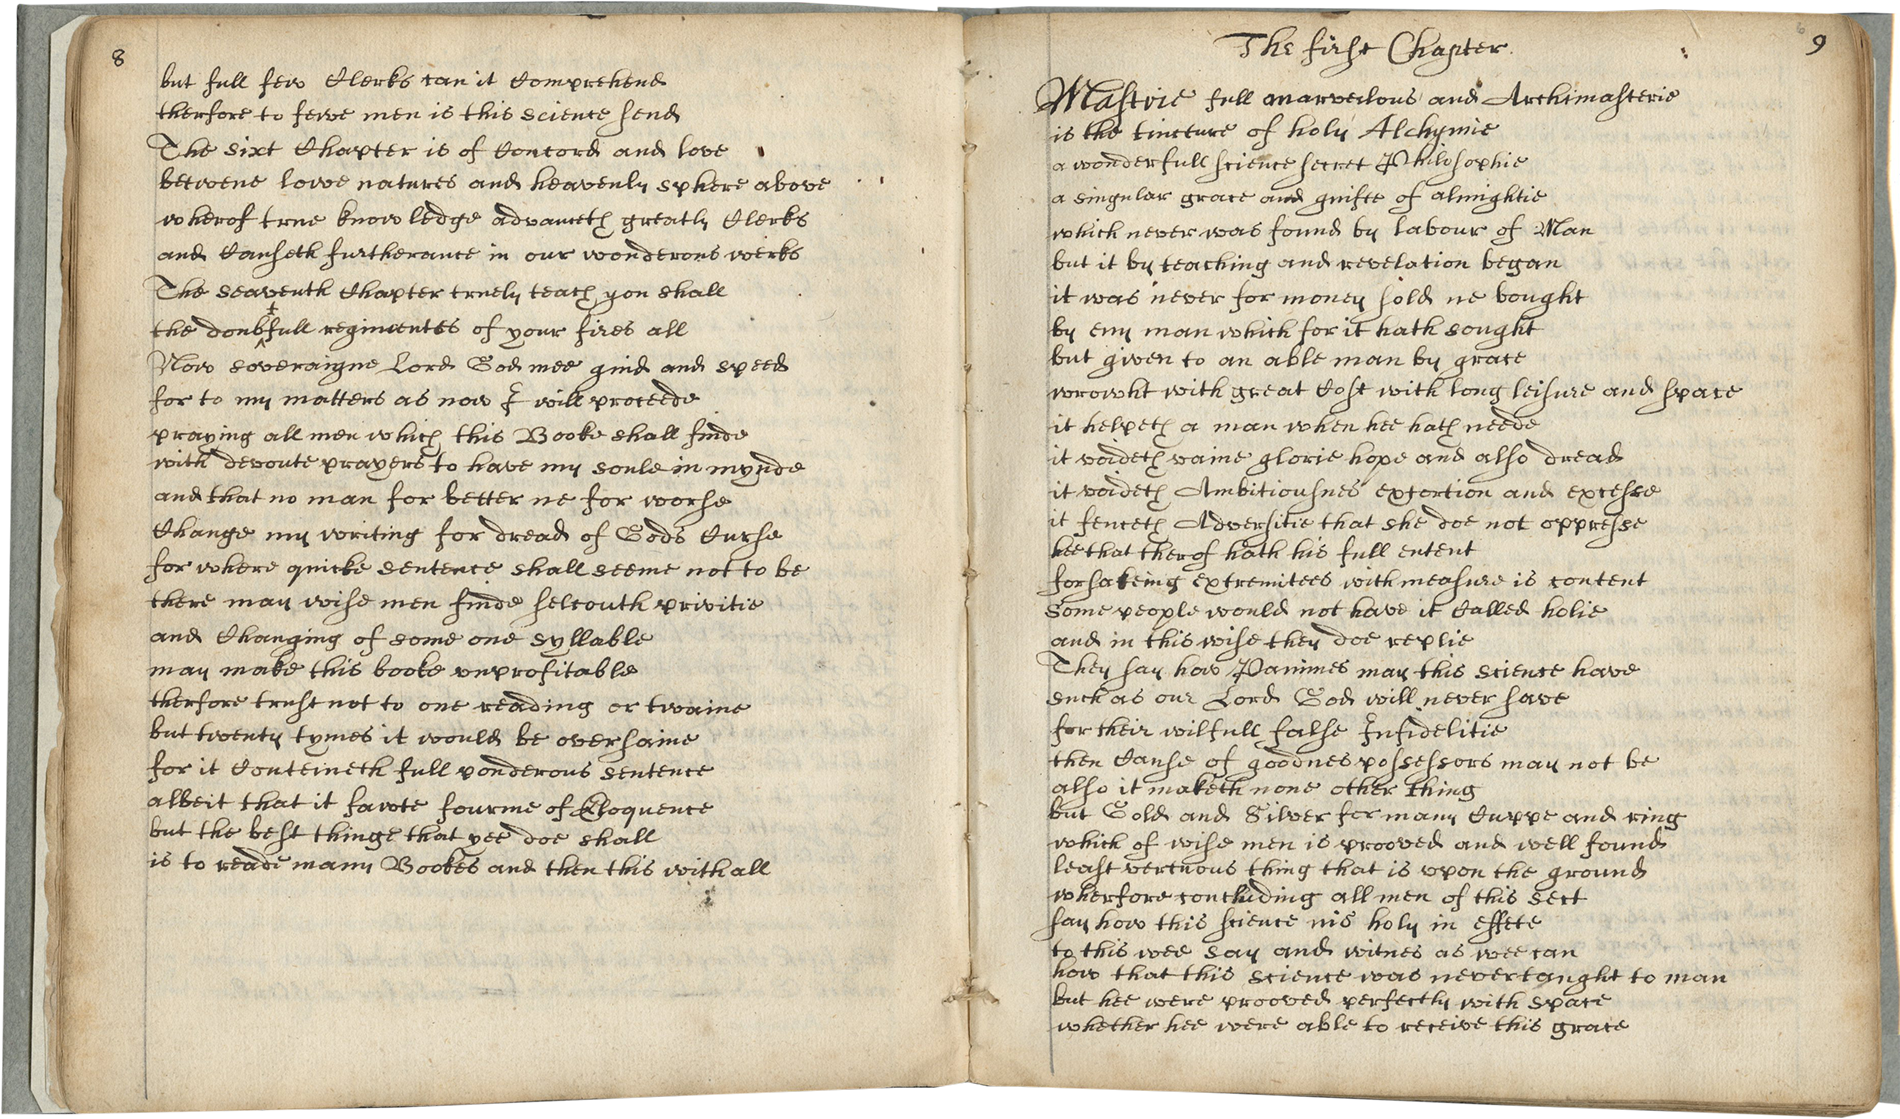 8
but full few Clerks can it Comprehend
therfore to fewe men is this science send
The sixt Chapter is of Concord and love
betwene lowe natures and heavenly sphere above
wherof true knowledge advanceth greatly Clerks
and Causeth furtherance in our wonderous werks
The seaventh Chapter truely teach you shall
the doubtfull regimentes of your fires all
Now soveraigne Lord God mee guid and speed
for to my matters as now I will proceede
praying all men which this Booke shall finde
with devoute prayers to have my soule in mynde
and that no man for better ne for worse
Change my writing for dread of Gods Curse
for where quicke sentence shall seeme not to be
there may wise men finde selcouth privitie
and Changing of some one syllable
may make this booke unprofitable
therfore trust not to one reading or twaine
but twenty tymes it would be oversaine
for it Conteineth full ponderous sentence
albeit that it faute fourme of Eloquence
but the best thinge that yee doe shall
is to reade many Bookes and then this withall
9
The first Chapter
Mastrie full marveilous and Archimasterie
is the tincture of holy Alchymie
a wonderfull science secret Philosophie
a singular grace and guifte of almightie
which never was found by labour of Man
but it by teaching and revelation began
it was never for money sold ne bought
by eny man which for it hath sought
but given to an able man by grace
wrowht with great Cost with long leisure and space
it helpeth a man when hee hath neede
it voideth vaine glorie hope and also dread
it voideth Ambitiousnes extortion and excesse
it fenceth Adversitie that she doe not oppresse
hee that therof hath his full entent
forsakeing extremitees with measure is content
Some people would not have it Called holie
and in this wise they doe replie
They say how Panimes may this science have
such as our Lord God will never save
for their wilfull false Infidelitie
then Cause of goodnes possessors may not be
also it maketh none other thing
but Gold and Silver for many Cuppe and ring
which of wise men is prooved and well found
least vertuous thing that is upon the ground
wherfore concluding all men of this sect
say how this science nis holy in effecte
to this wee say and witnes as wee can
how that this science was never taught to man
but hee were prooved perfectly with space
whether hee were able to receive this grace